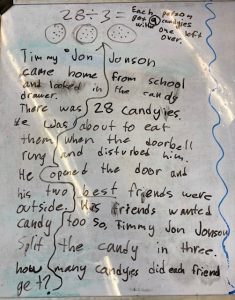 28÷3= Each person
gets 9 candyies
with one left
over.
Timmy "Jon" Jonson
came home from school
and looked in the candy
drawer.
There was 28 candyies.
He was about to eat
them when the doorbell
rung and disturbd him.
He opened the door and
his two best friends were
outside. His friends wanted
candy too so, Timmy Jon Jonson
Split the candy in three.
how many candyies did each friend
get?